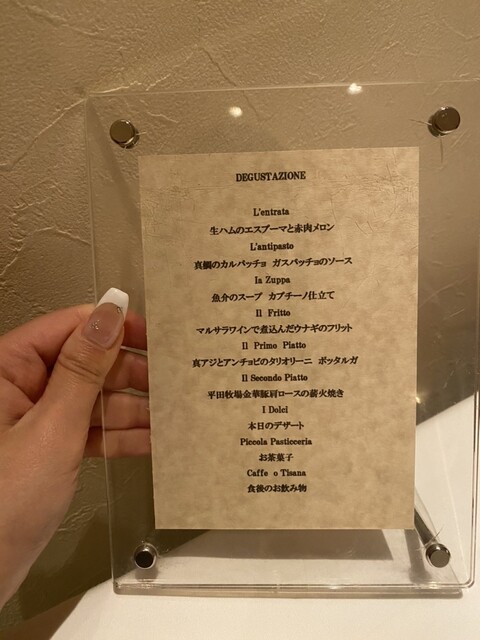 DEGUSTAZIONE
L'entrata
生ハムのエスプーマと赤肉メロン
L'antipasto
真鯛のカルパッチョ ガスパッチョのソース
la Zuppa
魚介のスープ カプチーノ仕立て
Il Fritto
マルサラワインで煮込んだウナギのフリット
Il Primo Piatto
真アジとアンチョビのタリオリーニ ボッタルガ
Il Secondo Piatto
平田牧場金華豚肩ロースの薪火焼き
I Dolci
本日のデザート
Piccola Pasticceria
お茶菓子
Caffe o Tisana
食後のお飲み物